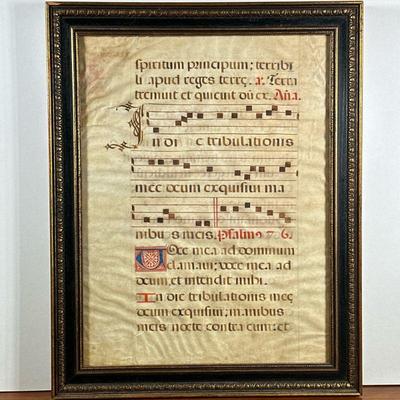 spiritum principum: terribi
li apud reges terre. a. Terra
tremuit et quieuit dũ ex. Aña.
In di e tribulationis
mee deum exquisiui ma
nibus meis. Psalmo 76.
Uoce mea ad dominum
clamaui; uoce mea ad
deum, et intendit mihi.
In die tribulationis mee
deum exquisiui; manibus
meis nocte contra eum: et